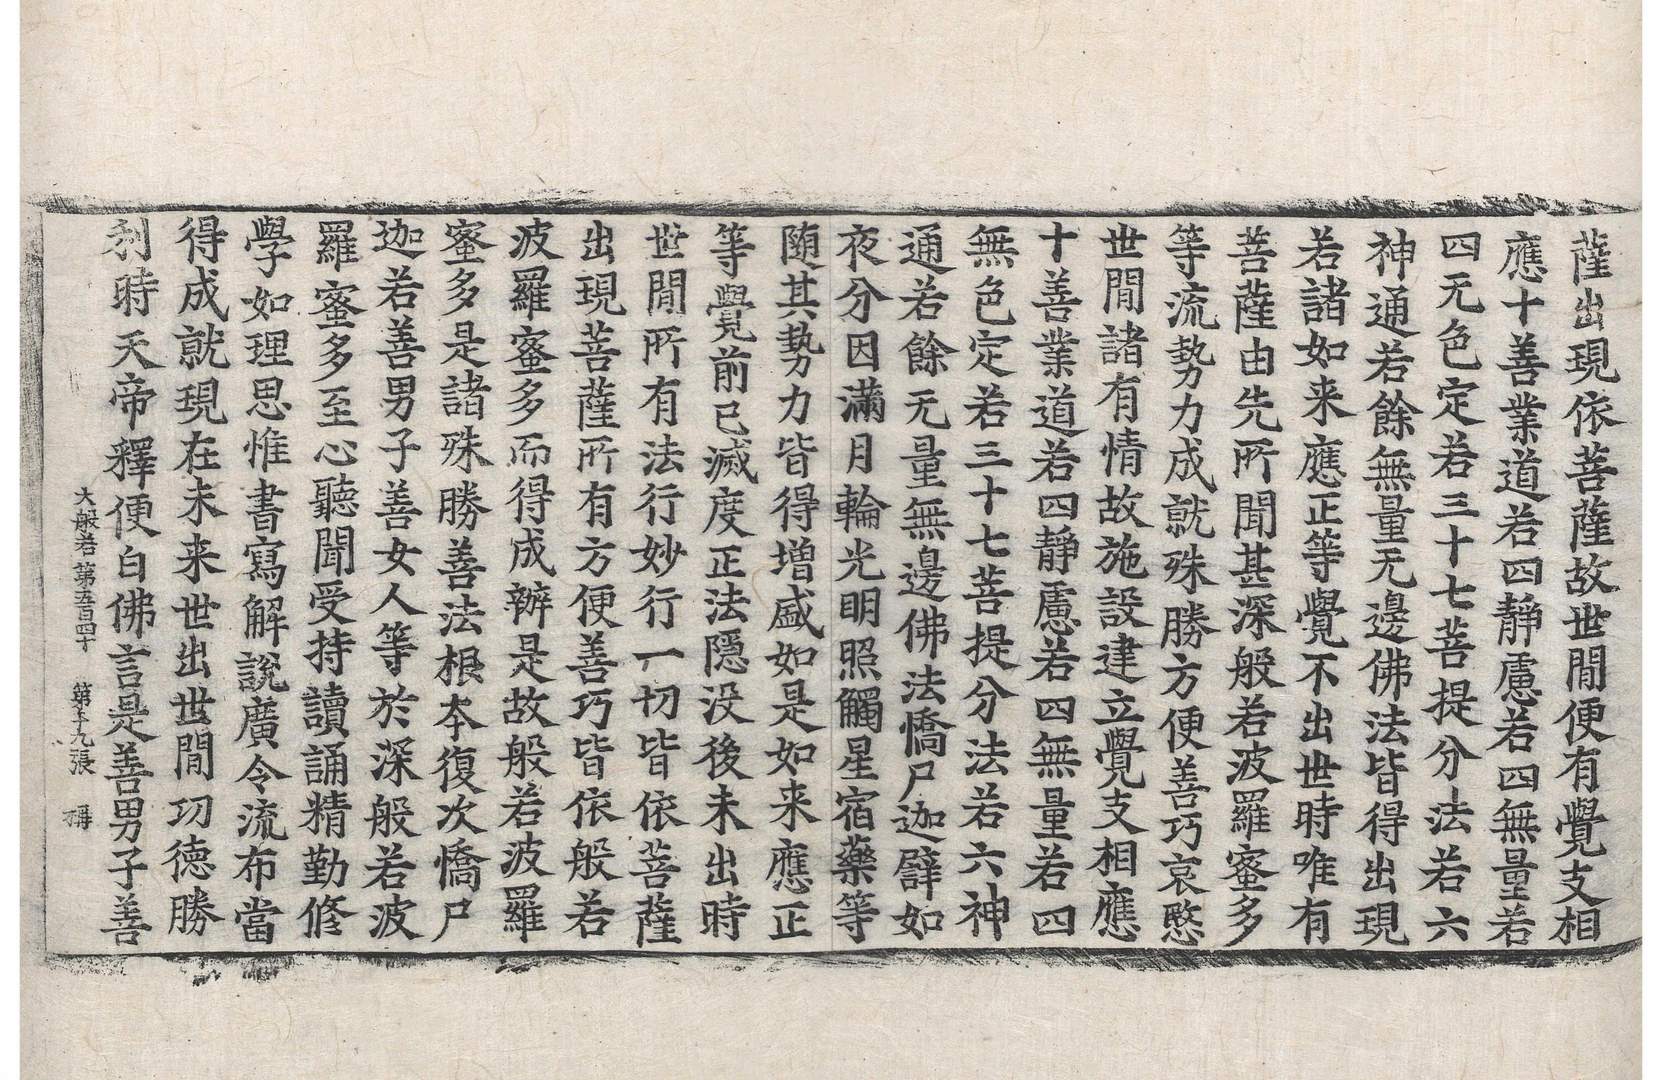 薩出現依菩薩故世間便有覺支相
應十善業道若四靜慮若四無量若
四无色定若三十七菩提分法若六
神通若餘無量无邊佛法皆得出現
若諸如来應正等覺不出世時唯有
菩薩由先所聞甚深般若波羅蜜多
等流勢力成就殊勝方便善巧哀愍
世間諸有情故施設建立覺支相應
十善業道若四靜慮若四無量若四
無色定若三十七菩提分法若六神
通若餘无量無邊佛法憍尸迦譬如
夜分因滿月輪光明照觸星宿藥等
随其勢力皆得增盛如是如来應正
等覺前已滅度正法隱没後未出時
世間所有法行妙行一切皆依菩薩
出現菩薩所有方便善巧皆依般若
波羅蜜多而得成辦是故般若波羅
蜜多是諸殊勝善法根本復次憍尸
迦若善男子善女人等於深般若波
羅蜜多至心聽聞受持讀誦精勤修
學如理思惟書寫解說廣令流布當
得成就現在未来世出世間功徳勝
利時天帝釋便白佛言是善男子善
大般若第五百四十 第十九張 稱